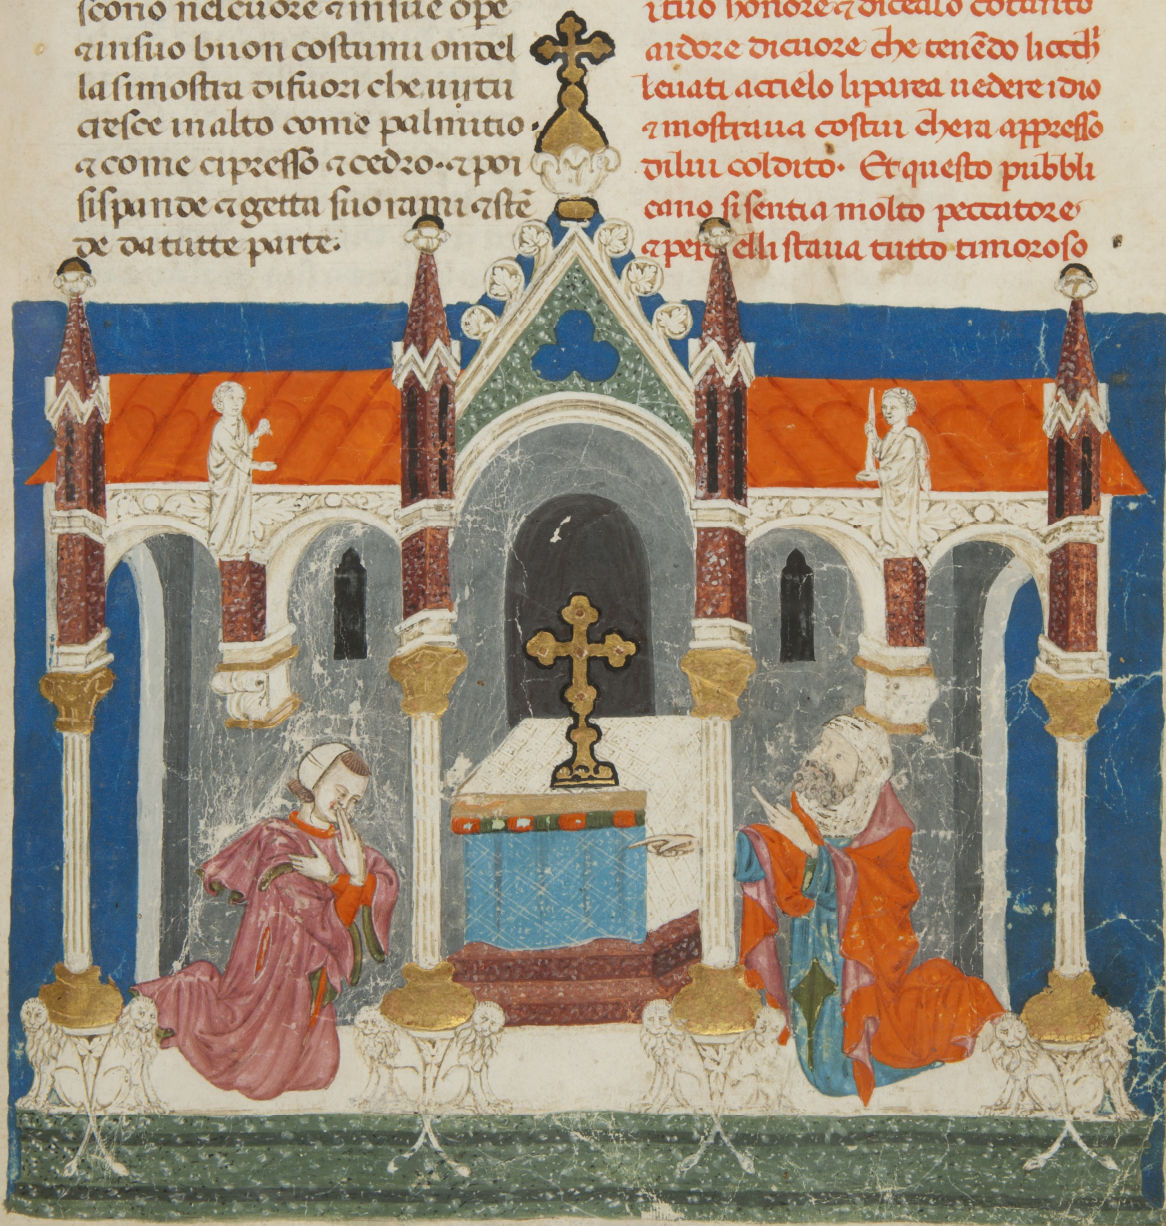 scono nelcuore ⁊ insue ope
⁊insuo buon costumi ondel
la simostra difuori che uirtu
cresce in alto come palmitio
⁊ come cipresso ⁊ cedro·⁊ poi
sispande ⁊ getta suoi rami ⁊stē
de da tutte parte·
ituo honore ⁊ dicealo cotanto
ardore dicuore che tenēdo liocch
leuati accielo li parea uedere idio
⁊ mostraua costui ch̄era appresso
dilui coldito· Et questo pubbli
cano si sentia molto peccatore
elli staua tutto timoroso